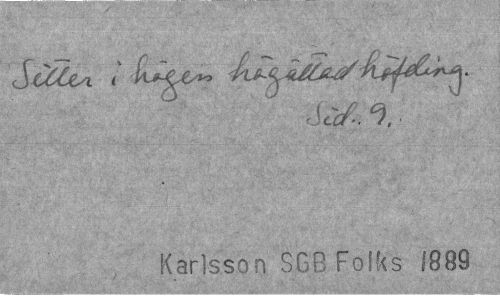 Sitter i högen högättad höfding.
Sid. 9.
Karlsson SGB Folks 1889